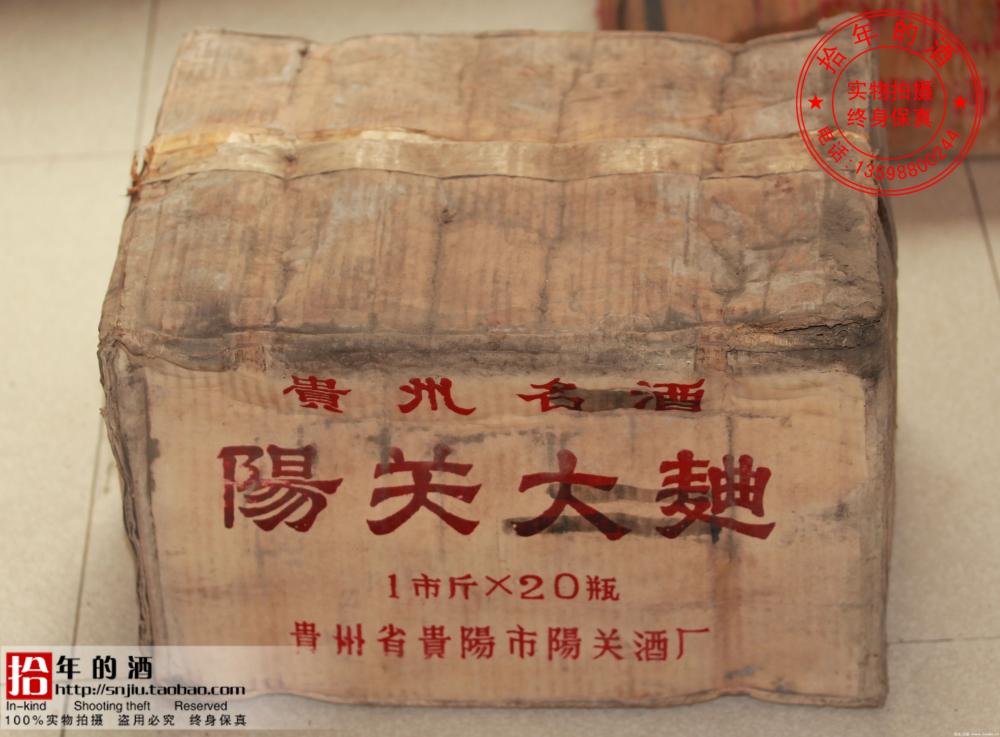 拾年的酒
实物拍摄
终身保真
电话:13598800244
貴州名酒
陽关大麯
1市斤×20瓶
貴州省貴陽市陽关酒厂
拾年的酒
http://snjiu.taobao.com
In-kind Shooting theft Reserved
100%实物拍摄 盗用必究 终身保真